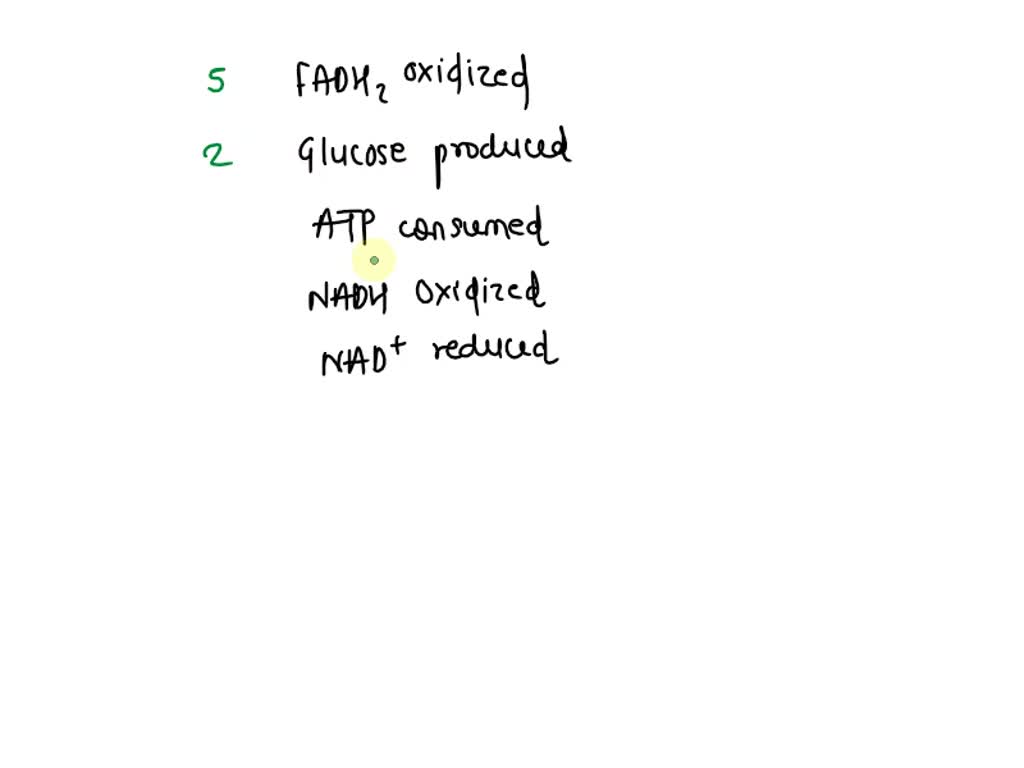 5 FADH₂ oxidized
2 Glucose produced
ATP consumed
NADH oxidized
NAD⁺ reduced